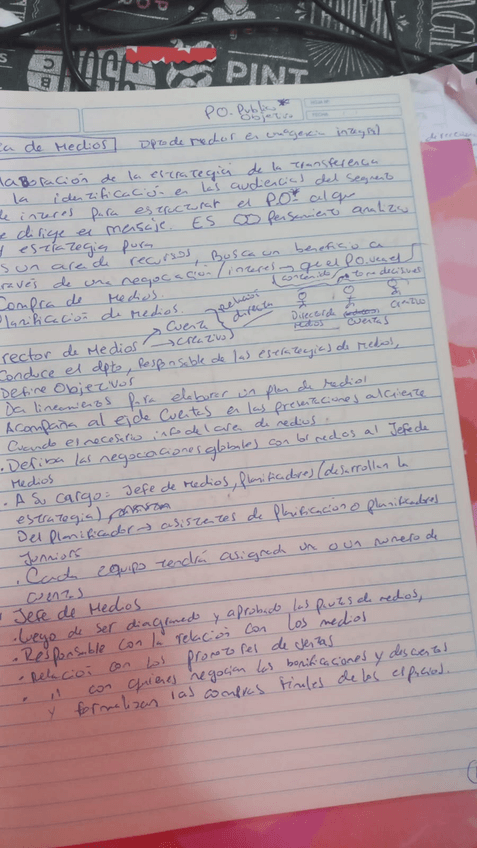 PINT
PO. Publico*
Objetivo
de Medios Dpto de Medios en una agencia integral
laboración de la estrategia de la transferencia
la identificación en las audiencias del segmento
de interes para estructurar el PO* al que
se dirige el mensaje. ES pensamiento analitico
y estrategia pura
es un area de recursos, Busca un beneficio a
través de una negociación/interes → que el PO vea el
contenido toma decisiones
Compra de Medios.
Planificación de Medios. relación
directa
Director de Medios → Cuenta
→ creativo
Director de
Medios Cuentas Creativo
Conduce el dpto, Responsable de las estrategias de Medios,
Define Objetivos
Da lineamientos para elaborar un plan de Medios
Acompaña al eje de Cuentas en las presentaciones al cliente
Cuando es necesario info del area de medios.
. Definia las negociaciones globales con los medios al Jefe de
Medios
. A su cargo: Jefe de Medios, planificadores (desarrollan la
estrategia),
Del planificador → asistentes de planificacion o planificadores
Juniors
. Cada equipo tendrá asignada un o un numero de
cuentas
Jefe de Medios
. Luego de ser diagramado y aprobado las pautas de medios,
. Responsable con la relación con los medios
. Relación con los promotores de ventas
. " con quienes negocian las bonificaciones y descuentos
y formalizan las compras finales de los espacios.